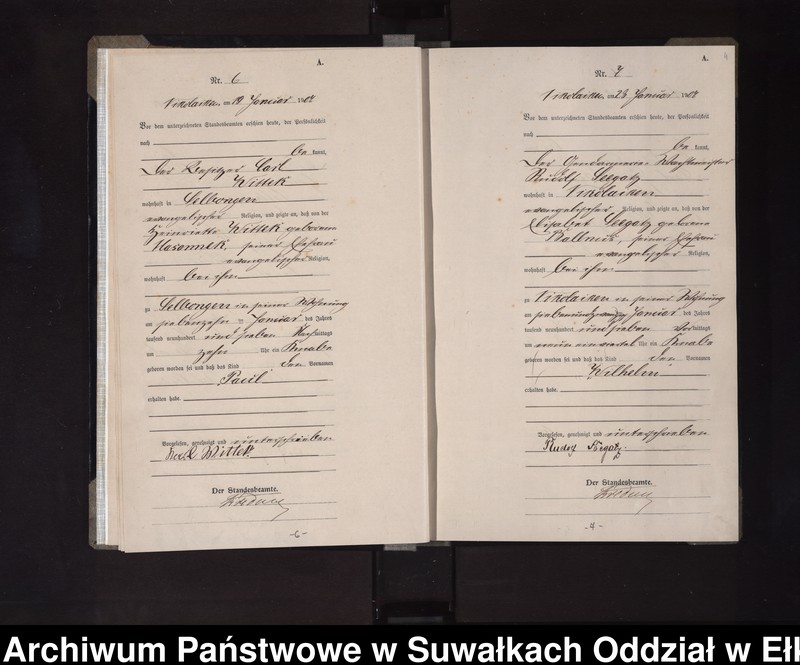 A.
Nr. 6
Nikolaiken am 19 Januar 190
Vor dem unterzeichneten Standesbeamten erschien heute, der Persönlichkeit
nach
be kannt,
Der Besitzer Carl
Wittek
wohnhaft in Selbongen
evangelischer Religion, und zeigte an, daß von der
Henriette Wittek geborene
seiner Ehefrau
evangelischer Religion,
wohnhaft bei ihm
zu Selbongen in seiner Wohnung
am siebenzehn ten Januar des Jahres
tausend neunhundert und sieben Nachmittags
um zehn Uhr ein Knabe
geboren worden sei und daß das Kind den Vornamen
Paul
erhalten habe
Vorgelesen, genehmigt und unterschrieben
Wittek
Der Standesbeamte.
-6-
A.
Nr. 7
Nikolaiken am 28 Januar 190
Vor dem unterzeichneten Standesbeamten erschien heute, der Persönlichkeit
nach
be kannt,
Der Gendarmerie Wachtmeister
Rudolf Seegatz
wohnhaft in Nikolaiken
evangelischer Religion, und zeigte an, daß von der
Elisabet Seegatz geborene
seiner Ehefrau
evangelischer Religion,
wohnhaft bei ihm
zu Nikolaiken in seiner Wohnung
am siebenundzwanzig Januar des Jahres
tausend neunhundert und sieben Vormittags
um neun ein viertel Uhr ein Knabe
geboren worden sei und daß das Kind den Vornamen
Wilhelm
erhalten habe
Vorgelesen, genehmigt und unterschrieben
Rudolf Seegatz.
Der Standesbeamte.
-7-
Archiwum Państwowe w Suwałkach Oddział w Eł